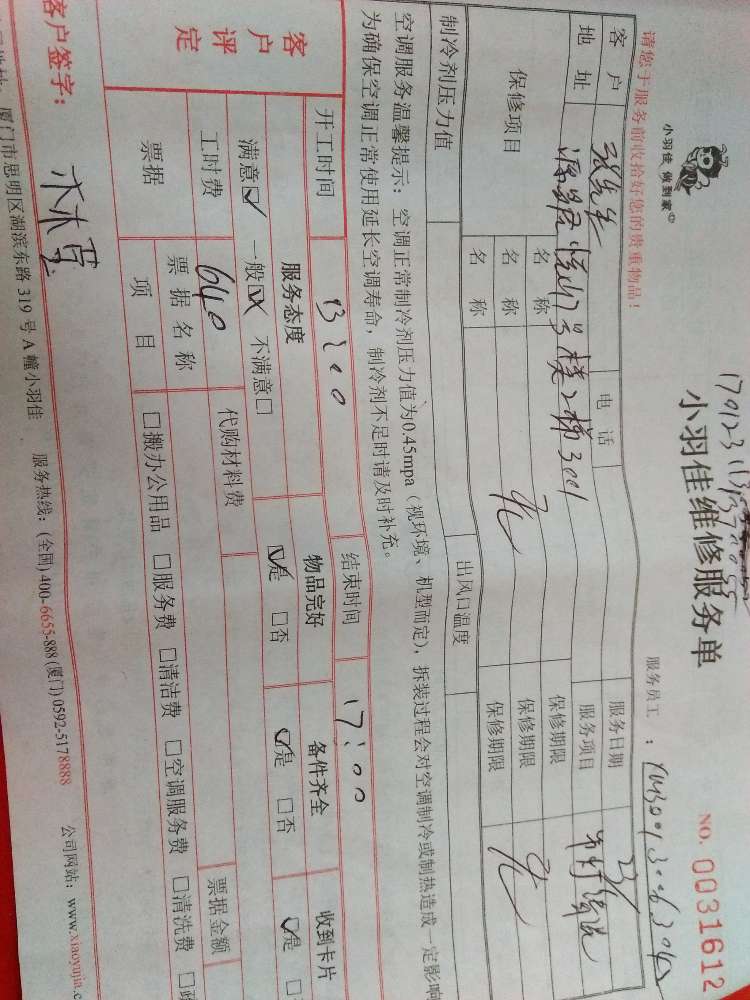 小羽佳 做到家
小羽佳维修服务单
NO. 0031612
请您于服务前收拾好您的贵重物品！
服务员工 ：
客户 张先生 电话 服务日期
地址 2梯3001 服务项目
保修项目 名称 保修期限
名称 无 保修期限 无
名称 保修期限
制冷剂压力值 出风口温度
空调服务温馨提示：空调正常制冷剂压力值为0.45mpa（视环境、机型而定），拆装过程会对空调制冷或制热造成一定影响
为确保空调正常使用延长空调寿命，制冷剂不足时请及时补充。
客户评定
开工时间 13:00 结束时间 17:00
服务态度 物品完好 备件齐全 收到卡片
满意☑ 一般☒ 不满意□ ☑是 □否 ☑是 □否 ☑是
工时费 640 代购材料费
票据 票据名称 票据金额
项目 □搬办公用品 □服务费 □清洁费 □空调服务费 □清洗费
客户签字：
厦门市思明区湖滨东路 319 号 A 幢小羽佳 服务热线：(全国) 400-6655-888 (厦门) 0592-5178888 公司网站：www.xiaoyujia.c